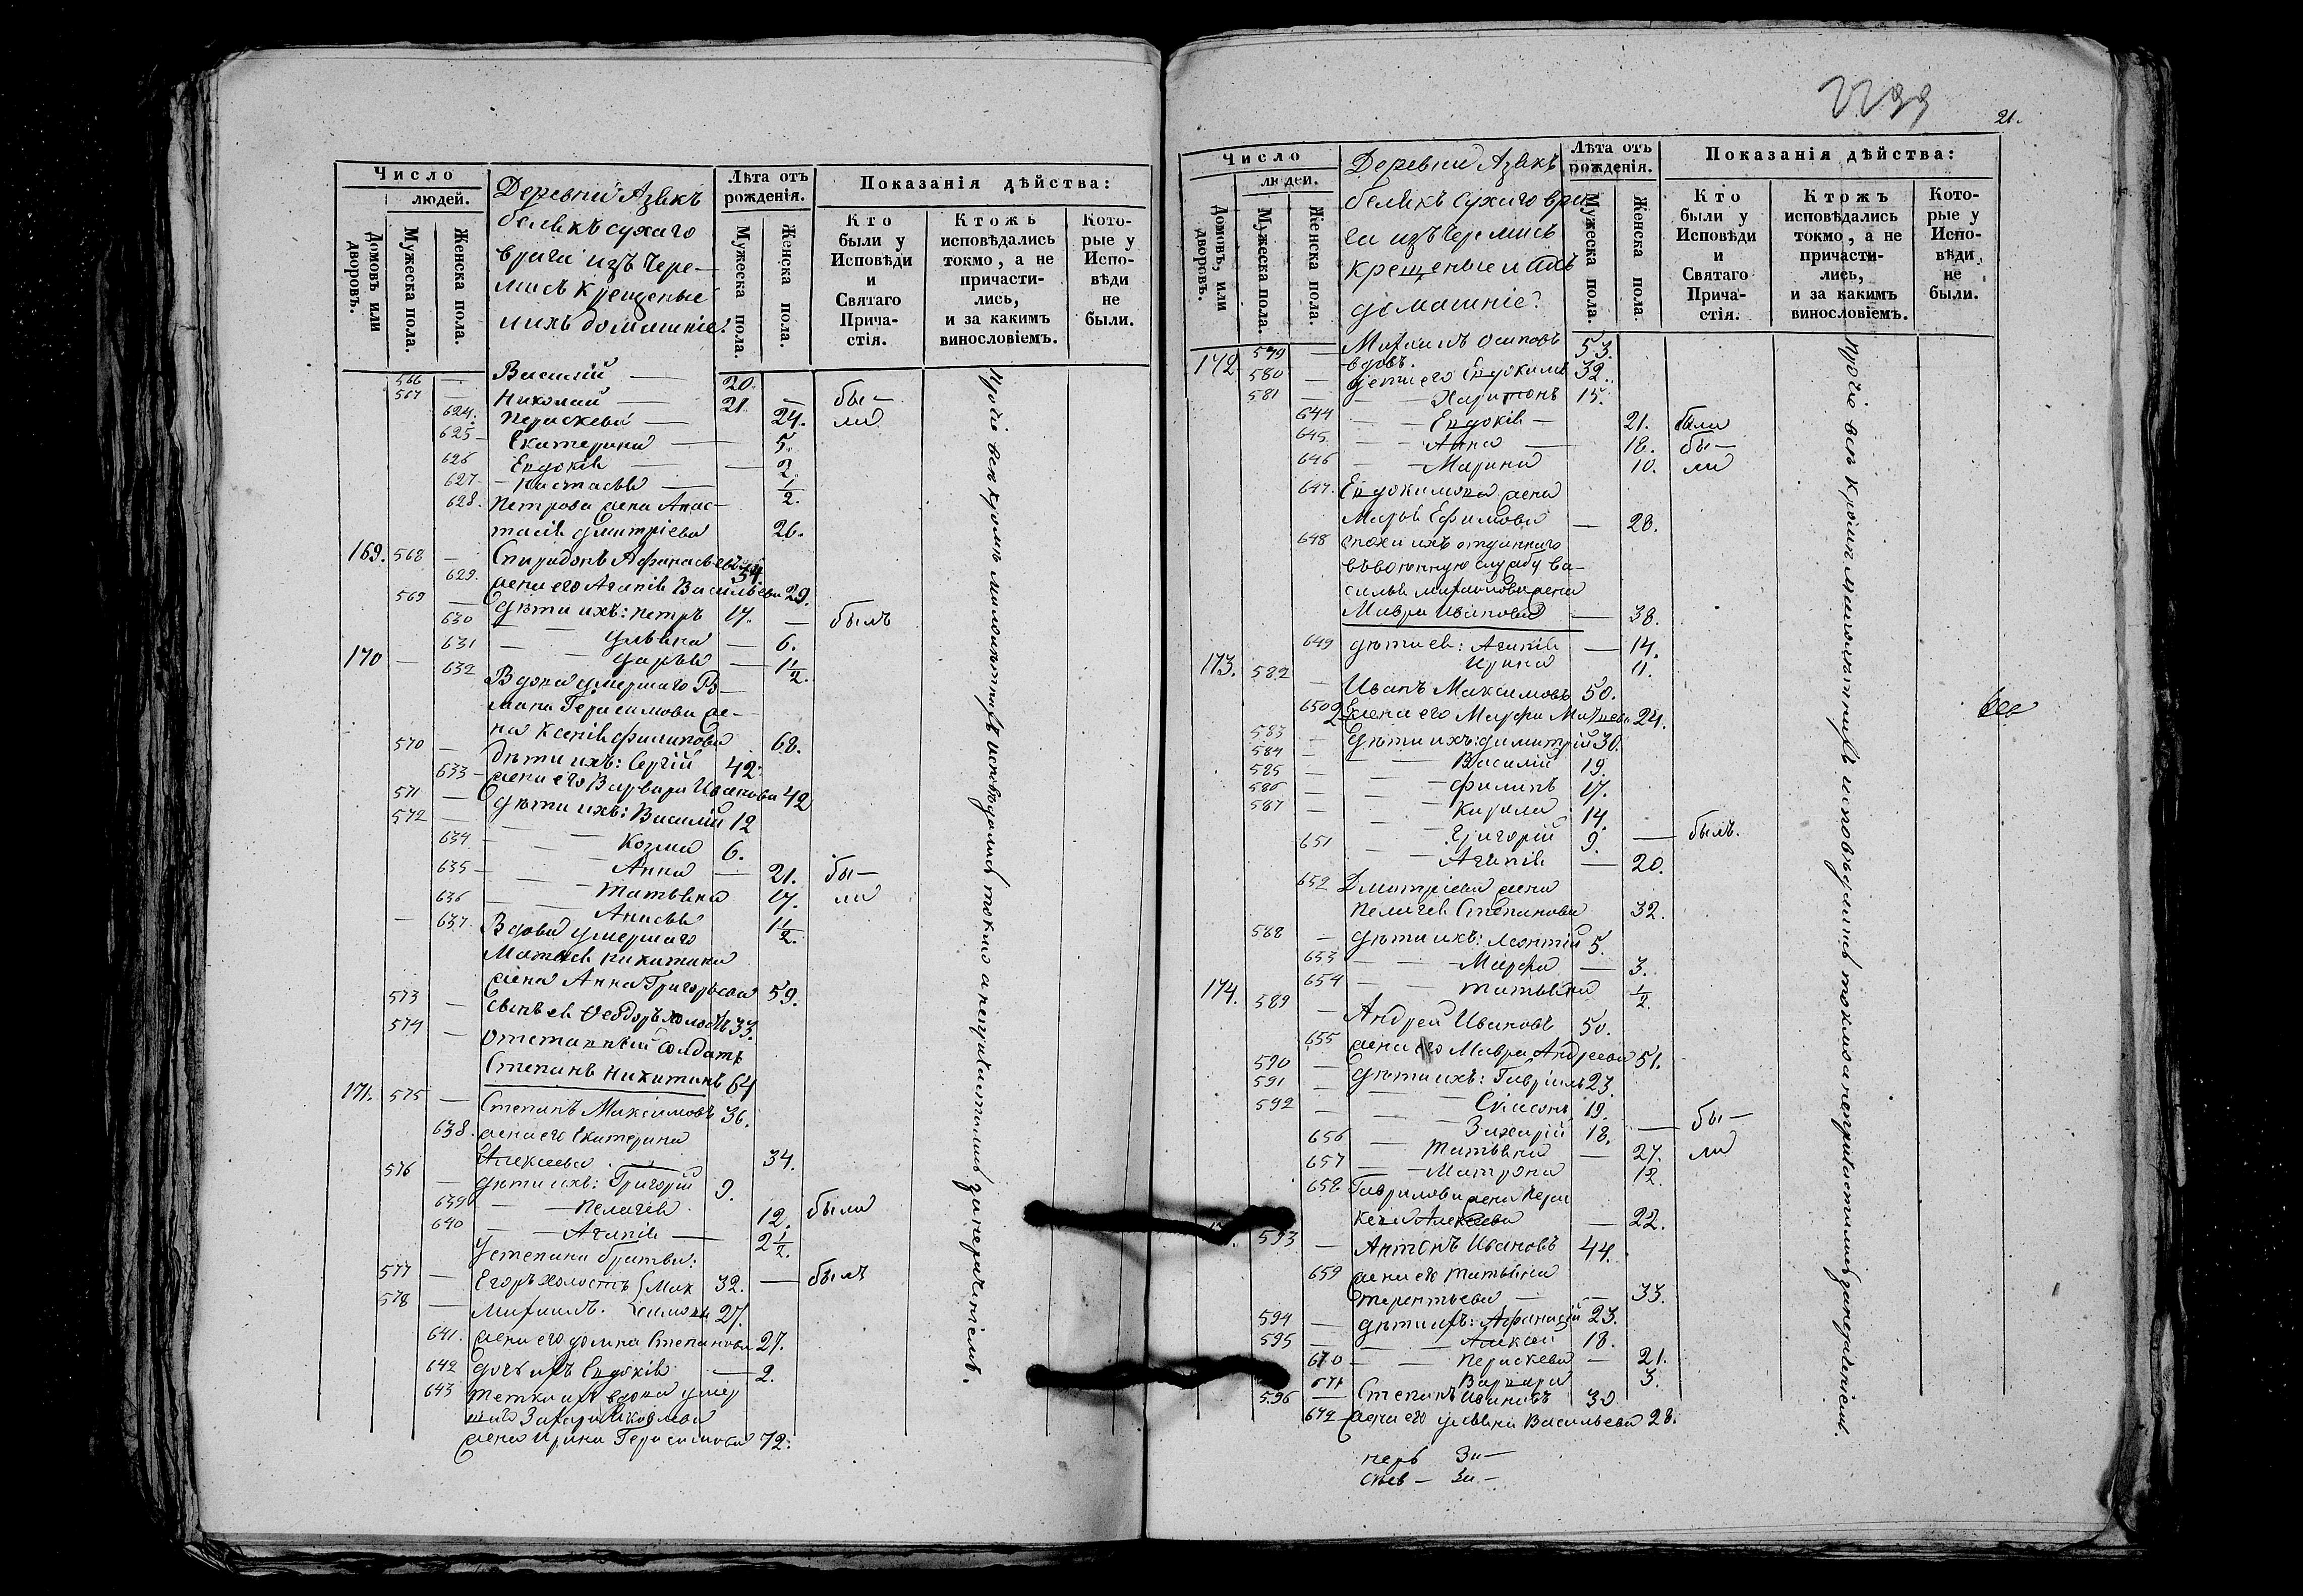 Число
людей.
Домовъ или дворовъ.
Мужеска пола.
Женска пола.
Деревни Азякъ
беликъ сухаго
врага изъ чере-
мисъ крещеные
и ихъ домашніе:
Лѣта отъ
рожденія.
Мужеска пола.
Женска пола.
Показанія дѣйства:
Кто
были у
Исповѣди
и
Святаго
Прича-
стія.
Ктожъ
исповѣдались
токмо, а не
причасти-
лись,
и за какимъ
винословіемъ.
Кото-
рые у
Испо-
вѣди
не
были.
566 — Василій — 20.
567 — Николай — 21. — бы-
624. Параскева — 24. ли
625 — Екатерина — 5.
626 Евдокія — 2.
627. — Настасья — 1/2.
628. Петрова жена Анас-
тасія Дмитріева 26.
169. 568 — Спиридонъ Афанасьевъ 54.
629. жена его Агапія Васильева 29.
569 — дѣти ихъ: Петръ 17. — былъ
630 — Ульяна — 6.
631 — Дарья — 1 1/2.
170 — 632 Вдова умершаго Ро-
мана Герасимова же-
на Ксенія Филипова 68.
570 — дѣти ихъ: Сергій 42.
633 — жена его Варвара Иванова 42
571 — дѣти ихъ: Василій 12
572 — Козма 6.
634 — Анна — 21. бы-
635 — Татьяна 17. ли
636 — Анисья 1 1/2.
— 637. Вдова умершаго
Матвея Никитина
жена Анна Григорьева 59.
573 — Сынъ ея Ѳеодоръ холостъ 33.
574 — Отставный солдатъ
Степанъ Никитинъ 64
171. 575 — Степанъ Максимовъ 36.
638. жена его Екатерина
Алексеева 34.
576 — дѣти ихъ: Григорій 9.
639 — Пелагея 12. были
640 — Агапія — 2 1/2.
У Степана братья:
577 — Егоръ холостъ Мак 32. — былъ
578 — Михаилъ. симовы 27.
641. жена его Домна Степанова 27.
642 дочь ихъ Евдокія — 2.
643 тетка ихъ вдова умер
шаго Захара Яковлева
жена Ирина Герасимова 72.
Прочіе всѣ кромѣ малолѣтнихъ исповѣдались токмо а непричастились за нераченіемъ.
2299
21.
Число
людей.
Домовъ, или дворовъ.
Мужеска пола.
Женска пола.
Деревни Азякъ
беликъ сухаго вра
га изъ черемисъ
крещеные и ихъ
домашніе:
Лѣта отъ
рожденія.
Мужеска пола.
Женска пола.
Показанія дѣйства:
Кто
были у
Исповѣди
и
Святаго
Прича-
стія.
Ктожъ
исповѣдались
токмо, а не
причасти-
лись,
и за какимъ
винословіемъ.
Кото-
рые у
Испо-
вѣди
не
были.
172 579 — Михаилъ Осиповъ 53.
вдовъ.
580 — дети его Евдокимъ 32.
581 — Харитонъ 15.
644 — Евдокія — 21. были
645 — Анна — 18. бы-
646 — Марина 10. ли
647. Евдокимова жена
Марья Ефимова — 28.
648 сноха ихъ отданнаго
въ военную службу Ва-
силья Михайлова жена
Мавра Иванова — 38.
649 дѣти ея: Агапія — 14.
Ирина 11.
173. 582 — Иванъ Максимовъ 50.
650 жена его Марфа 24.
583 — дѣти ихъ: Димитрій 30.
584 — Василій 19.
585 — Филипъ 17.
586 — Кирила 14.
587 — Григорій 9. — былъ.
651 — Агапія — 20.
652 Дмитріева жена
Пелагея Степанова 32.
588 — дѣти ихъ: Леонтій 5.
653 — Марфа — 3.
654 — Татьяна 1/2.
174. 589 — Андрей Ивановъ 50.
655 жена его Мавра Андреева 51.
590 — дѣти ихъ: Гавріилъ 23.
591 — Самсонъ 19. бы-
592 — Захарій 18. —
656 — Татьяна — 27. ли
657 — Матрона 12.
658 Гаврилова жена Парас
кева Алексеева — 22.
593 — Антонъ Ивановъ 44.
659 жена его Татьяна
Терентьева — 33.
594 — дѣти ихъ: Афанасій 23.
595 — Алексей 18.
670 — Параскева — 21.
671 Варвара 3.
596 — Степанъ Ивановъ 30
672 — жена его Ульяна Васильева 28.
Прочіе всѣ кромѣ малолѣтнихъ исповѣдались токмо а непричастились за нераченіемъ.